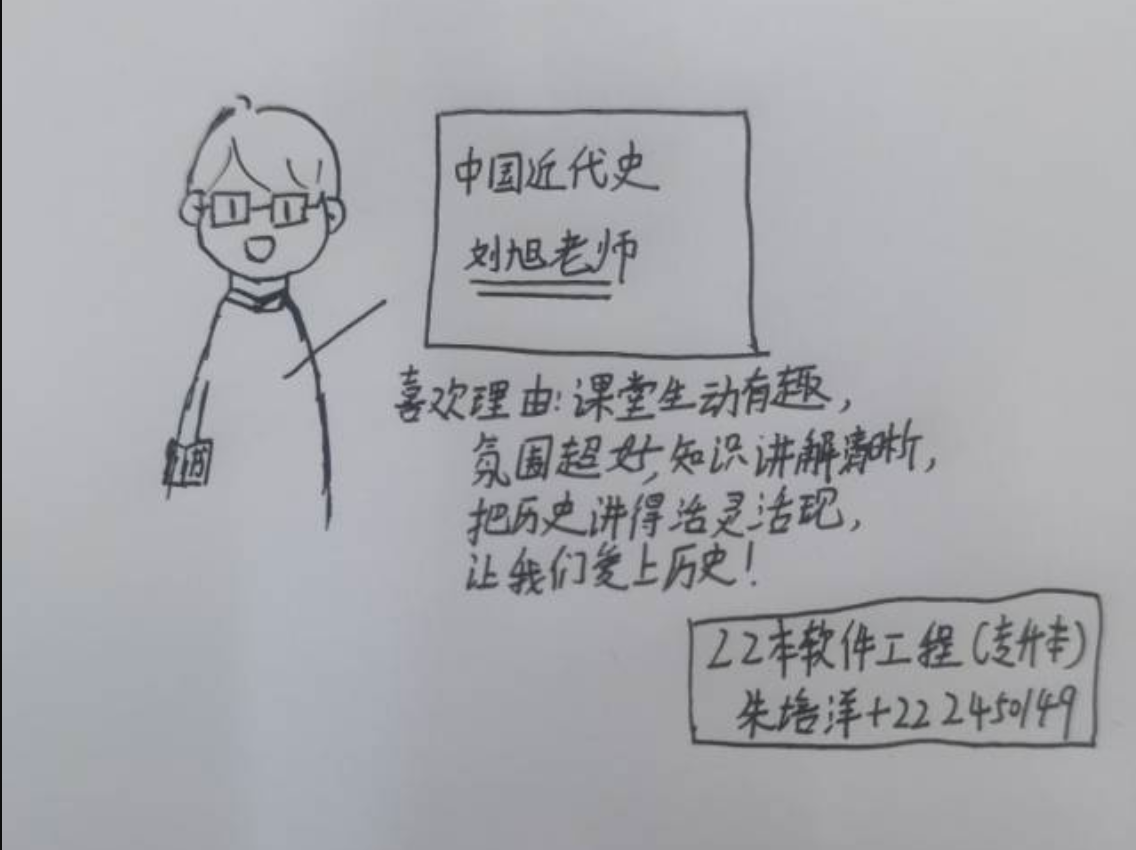 中国近代史
刘旭老师
喜欢理由:课堂生动有趣,
氛围超好,知识讲解清晰,
把历史讲得活灵活现,
让我们爱上历史!
22本软件工程(专升本)
朱培洋+222450149